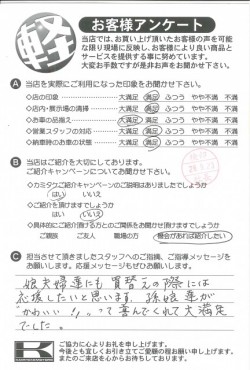 軽
お客様アンケート
当店では、お買い上げ頂いたお客様の声を可能
な限り現場に反映し、お客様により良い商品と
サービスを提供する事に努めています。
大変お手数ですが是非お声をお聞かせ下さい。
A 当店を実際にご利用になった印象をお聞かせ下さい。
◇店の印象 大満足 満足 ふつう やや不満 不満
◇店内・展示場の清掃 大満足 満足 ふつう やや不満 不満
◇お車の品揃え 大満足 満足 ふつう やや不満 不満
◇営業スタッフの対応 大満足 満足 ふつう やや不満 不満
◇納車時のお車の状態 大満足 満足 ふつう やや不満 不満
B 当店はご紹介を大切にしております。
ご紹介キャンペーンについてお聞かせ下さい。
◇カミタケご紹介キャンペーンのご説明はありましたでしょうか
はい いいえ
◇ご紹介を頂けますでしょうか
はい いいえ
◇具体的にご紹介頂ける方とのご関係をお聞かせ頂けますでしょうか
ご親族 ご友人 職場の方 機会があれば紹介したい
C 担当させて頂きましたスタッフへのご指摘、ご指導メッセージを
お願いします。応援メッセージもぜひお願いします。
娘夫婦達にも買替えの際には
応援したいと思います。孫娘達が
"かわいい!!"って喜んでくれて大満足
でした。
K
ご協力に心よりお礼を申し上げます。
今後とも宜しくお引き立てご愛顧の程お願い申し上げます。
またのご来店を心からお待ちしております。